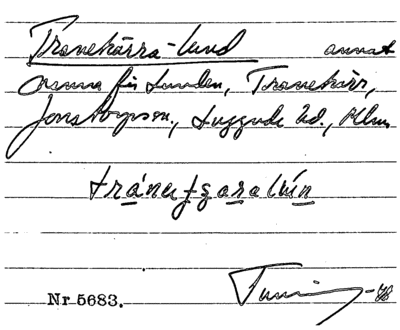 Tranekärra-lund annat
namn för Lunden, Tranekärr,
Jonstorps sn., Luggude hd., Mlm
Nr 5683.